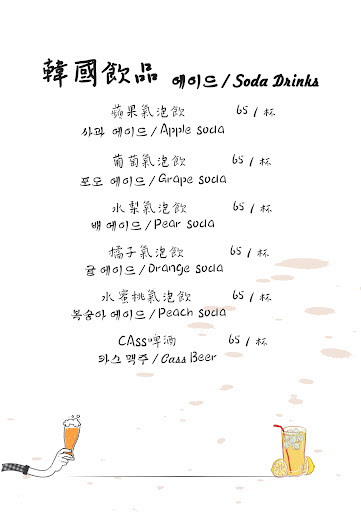 韓國飲品 에이드 / Soda Drinks
蘋果氣泡飲 65 / 杯
사과 에이드 / Apple soda
葡萄氣泡飲 65 / 杯
포도 에이드 / Grape soda
水梨氣泡飲 65 / 杯
배 에이드 / Pear soda
橘子氣泡飲 65 / 杯
귤 에이드 / Orange soda
水蜜桃氣泡飲 65 / 杯
복숭아 에이드 / Peach soda
CAss啤酒 65 / 杯
카스 맥주 / Cass Beer